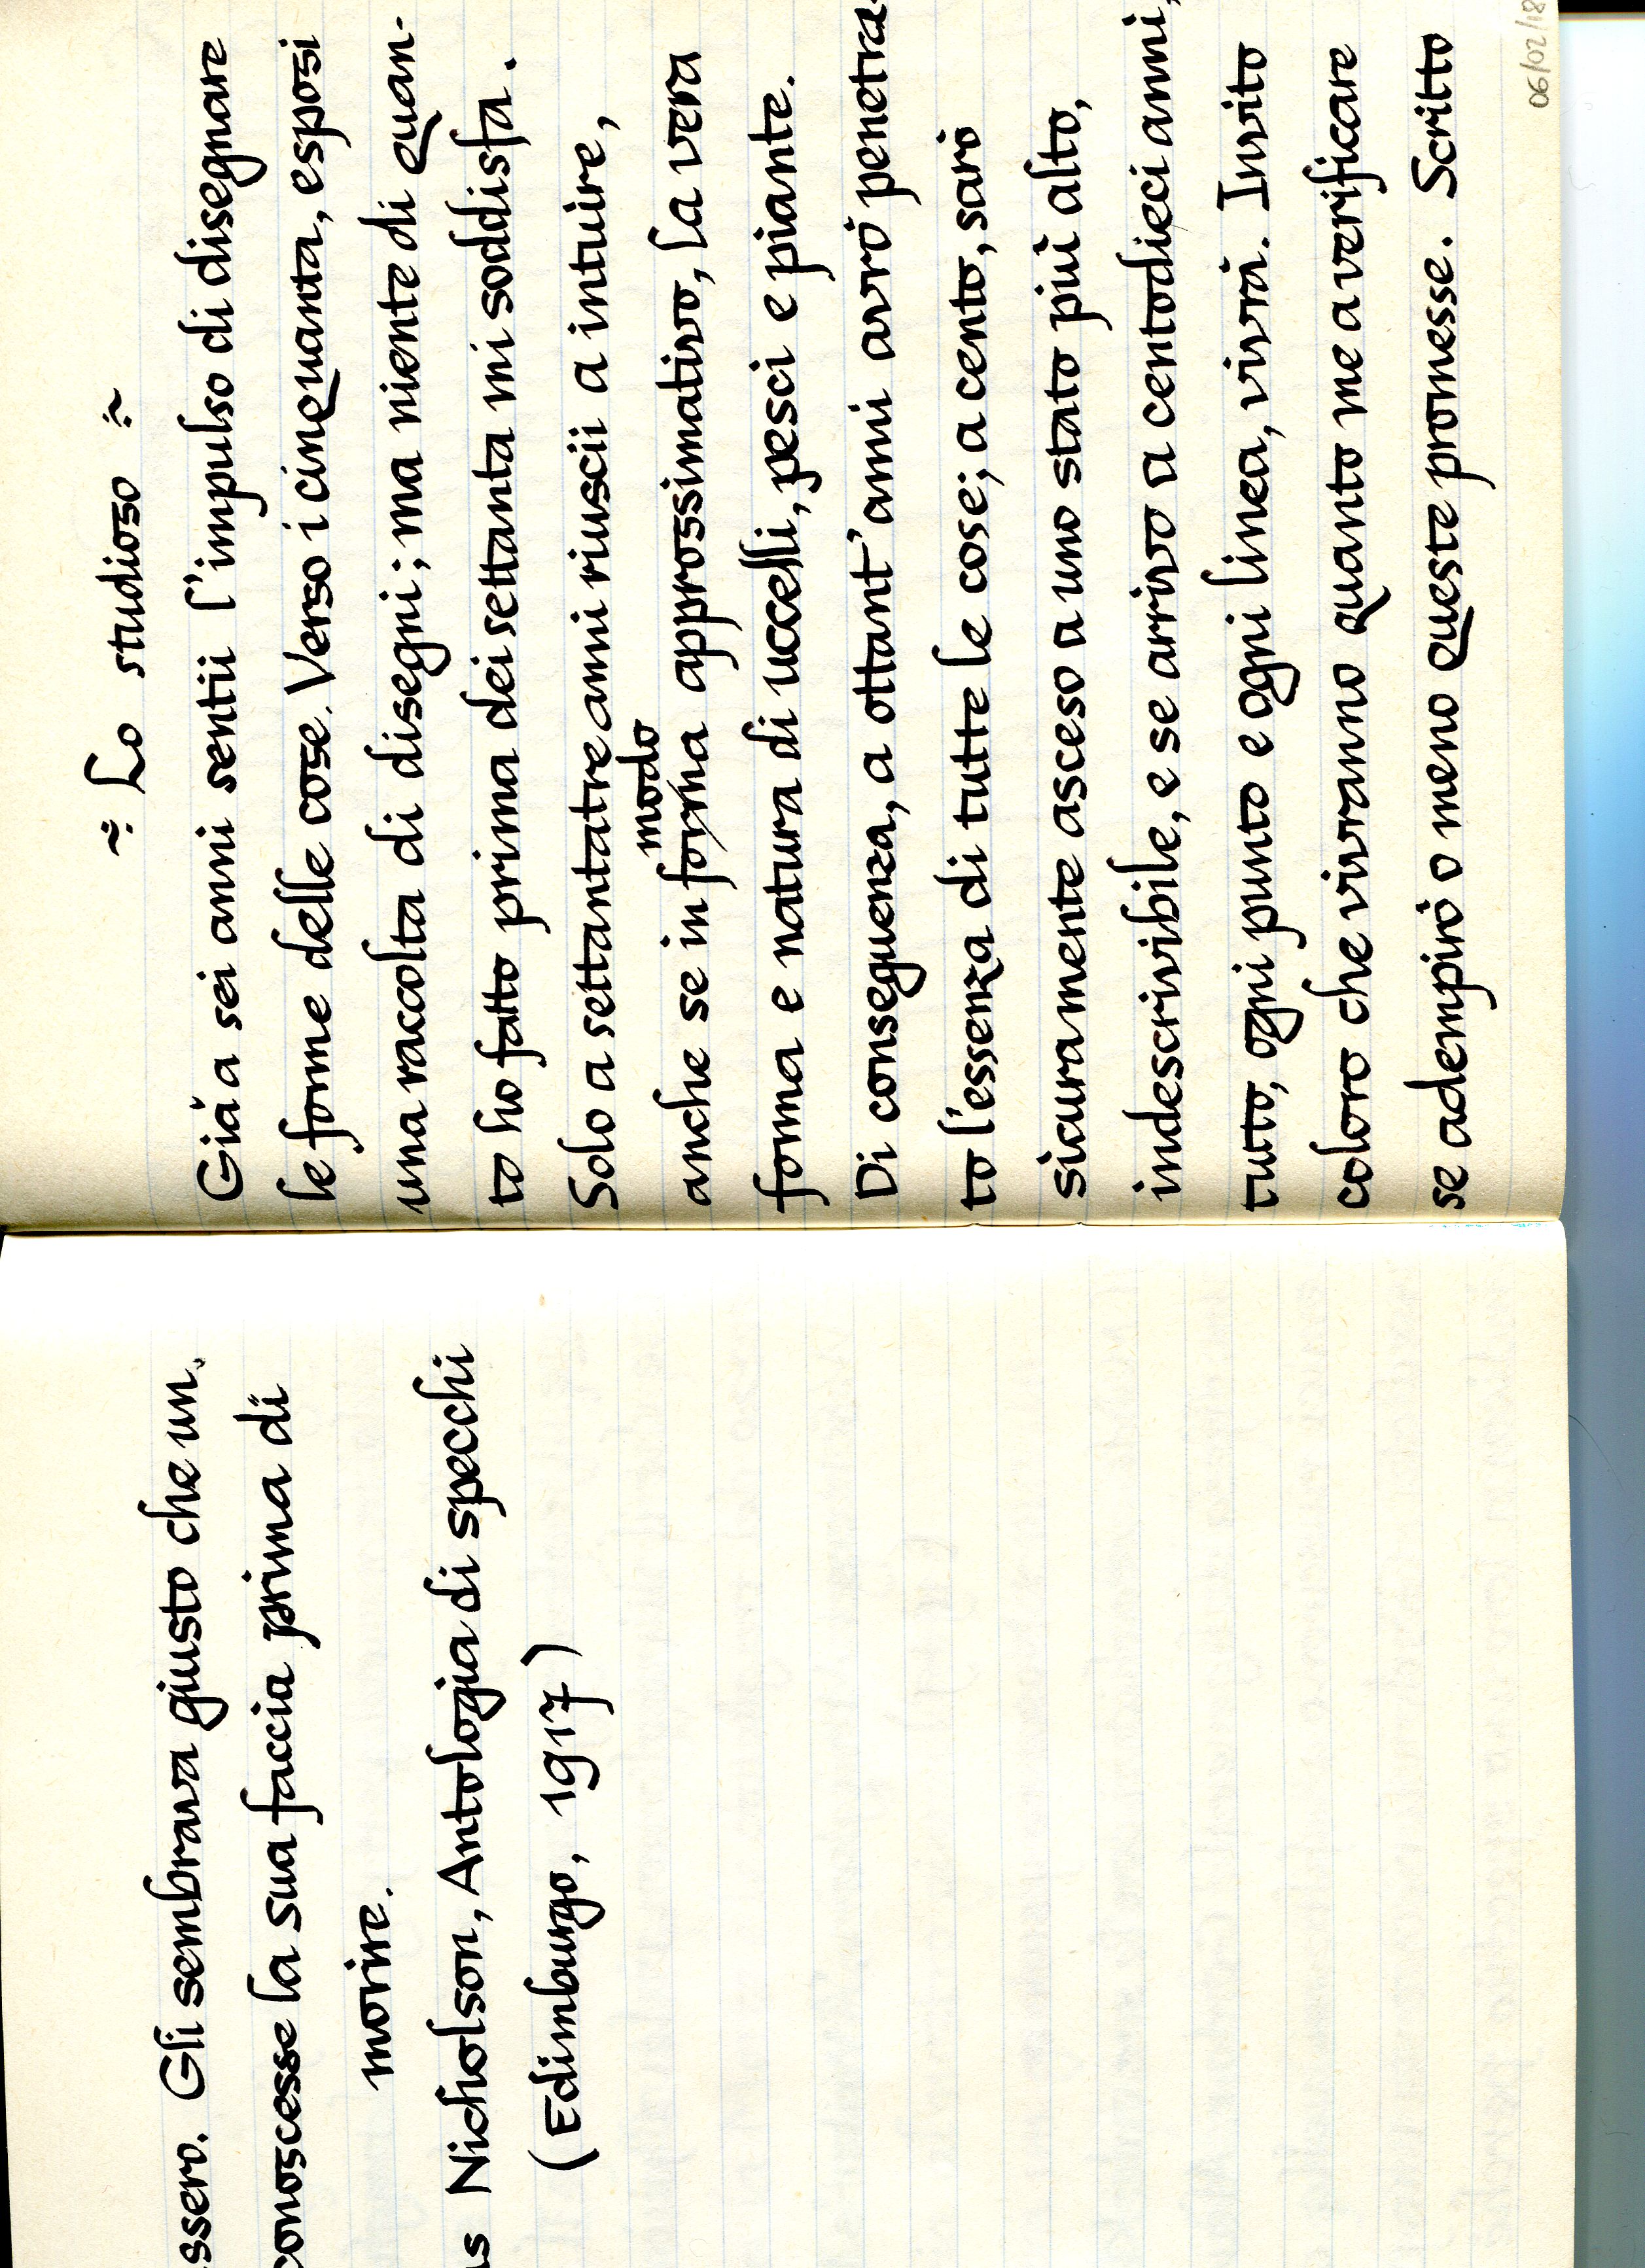 ssero. Gli sembrava giusto che un
conoscesse la sua faccia prima di
morire.
as Nicholson, Antologia di specchi
(Edimburgo, 1917)
~ Lo studioso ~
Già a sei anni sentii l'impulso di disegnare
le forme delle cose. Verso i cinquanta, esposi
una raccolta di disegni; ma niente di quan-
to ho fatto prima dei settanta mi soddisfa.
Solo a settantatre anni riuscii a intuire,
modo
anche se in forma approssimativo, la vera
forma e natura di uccelli, pesci e piante.
Di conseguenza, a ottant'anni avrò penetra-
to l'essenza di tutte le cose; a cento, sarò
sicuramente asceso a uno stato più alto,
indescrivibile, e se arrivo a centodieci anni,
tutto, ogni punto e ogni linea, vivrà. Invito
coloro che vivranno quanto me a verificare
se adempirò o meno queste promesse. Scritto
06/02/18